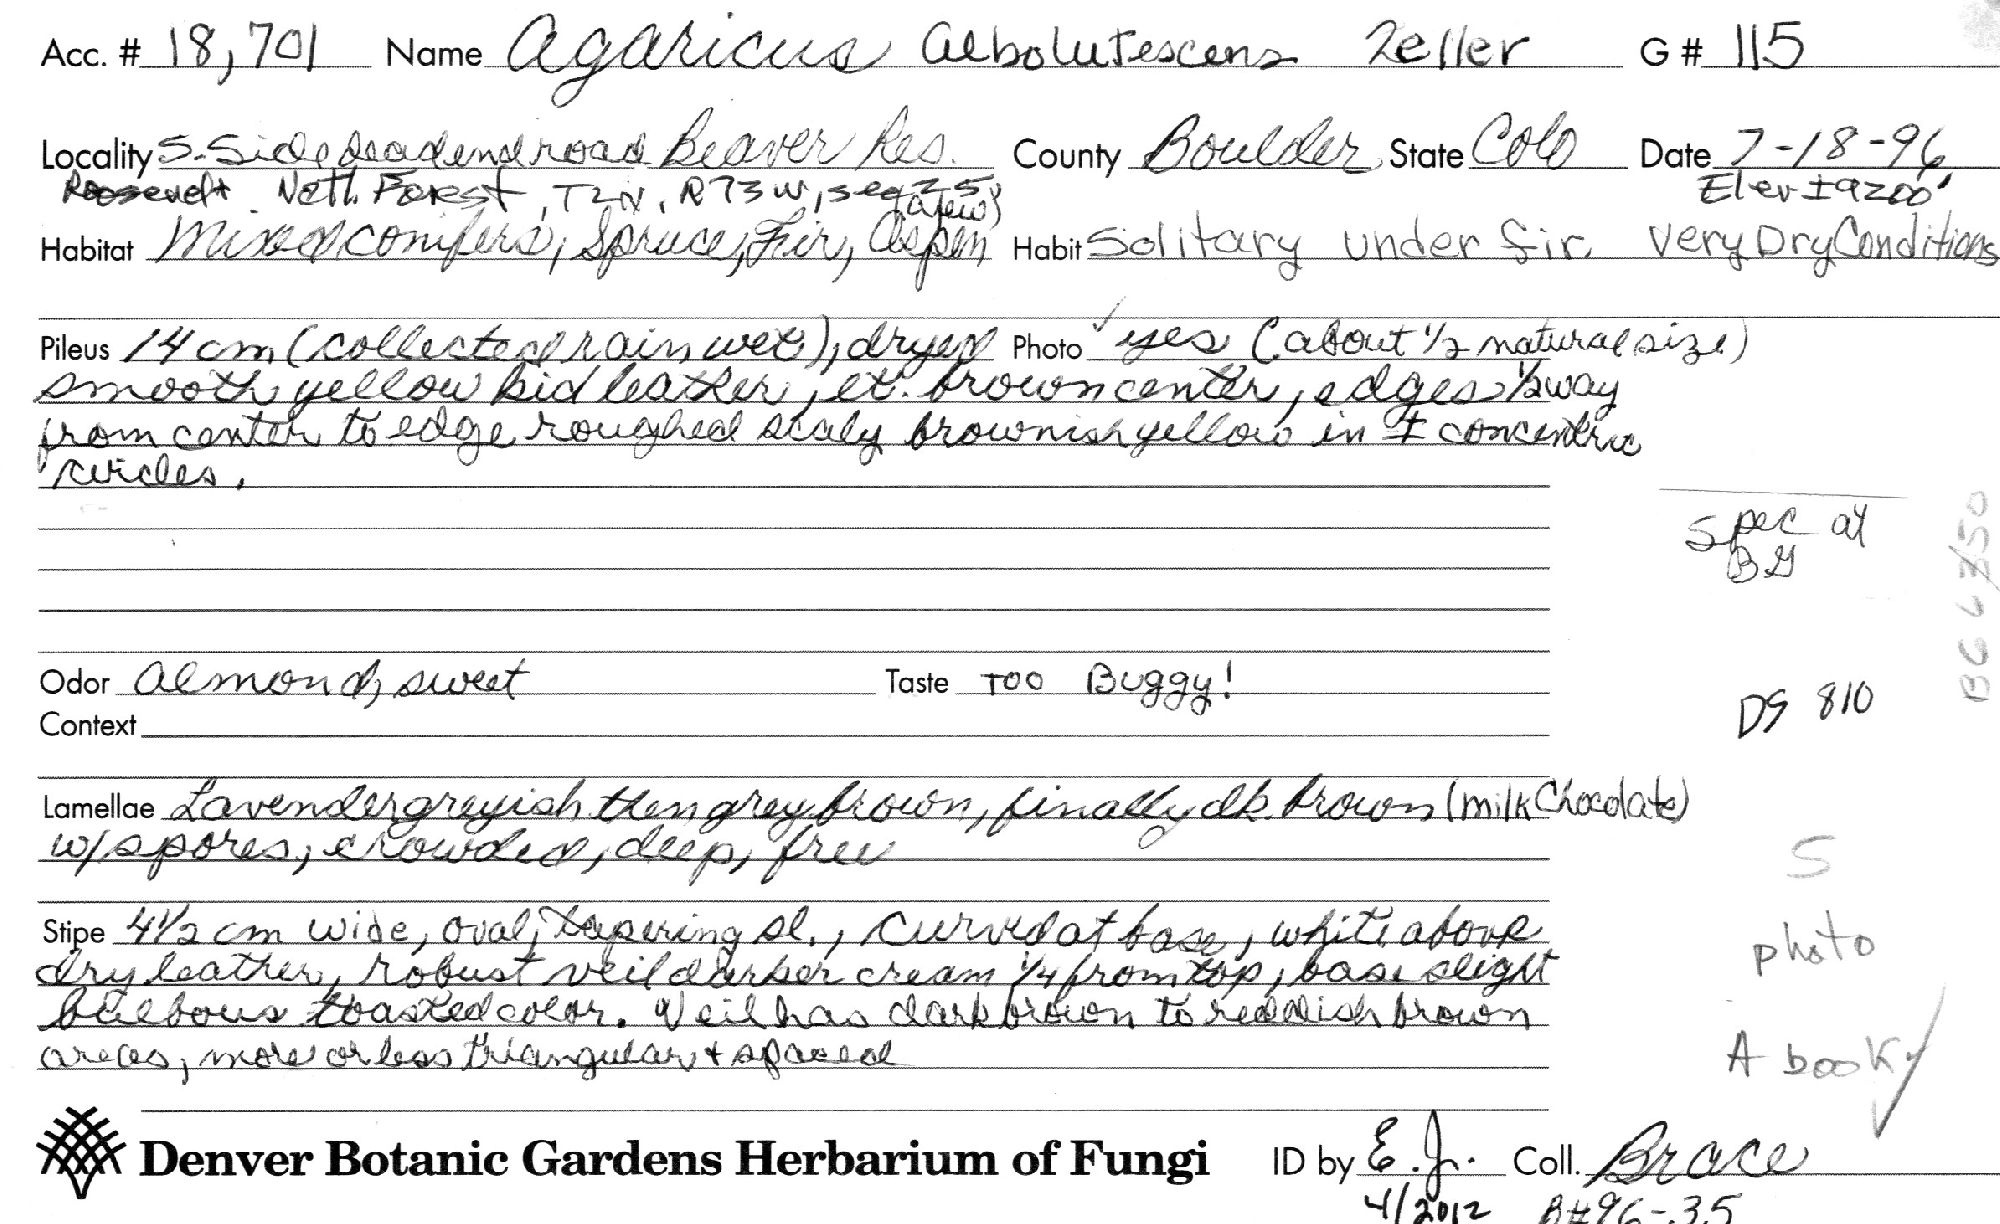 Acc. # 18,701 Name Agaricus albolutescens Zeller G # 115
Locality S. Side deadend road Beaver Res. County Boulder State Colo Date 7-18-96
Roosevelt Natl. Forest, T2N, R73W, sec 25 Elev ±9200'
(a few)
Habitat Mixed conifers, Spruce, Fir, Aspen Habit Solitary under fir. Very Dry Conditions
Pileus 14 cm (collected rain wet), dryed Photo ✓ yes (about 1/2 natural size)
smooth yellow kid leather, lt. brown center, edges 1/2 way
from center to edge roughed scaly brownish yellow in ± concentric
circles.
Spec at
BG
Odor almond, sweet Taste TOO Buggy!
Context
DS 810
Lamellae Lavender greyish then grey brown, finally dk. brown (milk Chocolate)
w/spores, crowded, deep, free
S
Stipe 4 1/2 cm wide, oval, tapering sl., curved at base, white above
photo
dry leather, robust veil darker cream 1/4 from top, base slight
bulbous toasted color. Veil has dark brown to reddish brown
areas, more or less triangular + spaced
A book ✓
Denver Botanic Gardens Herbarium of Fungi ID by E.J. Coll. Brace
4/2012 B#96-35